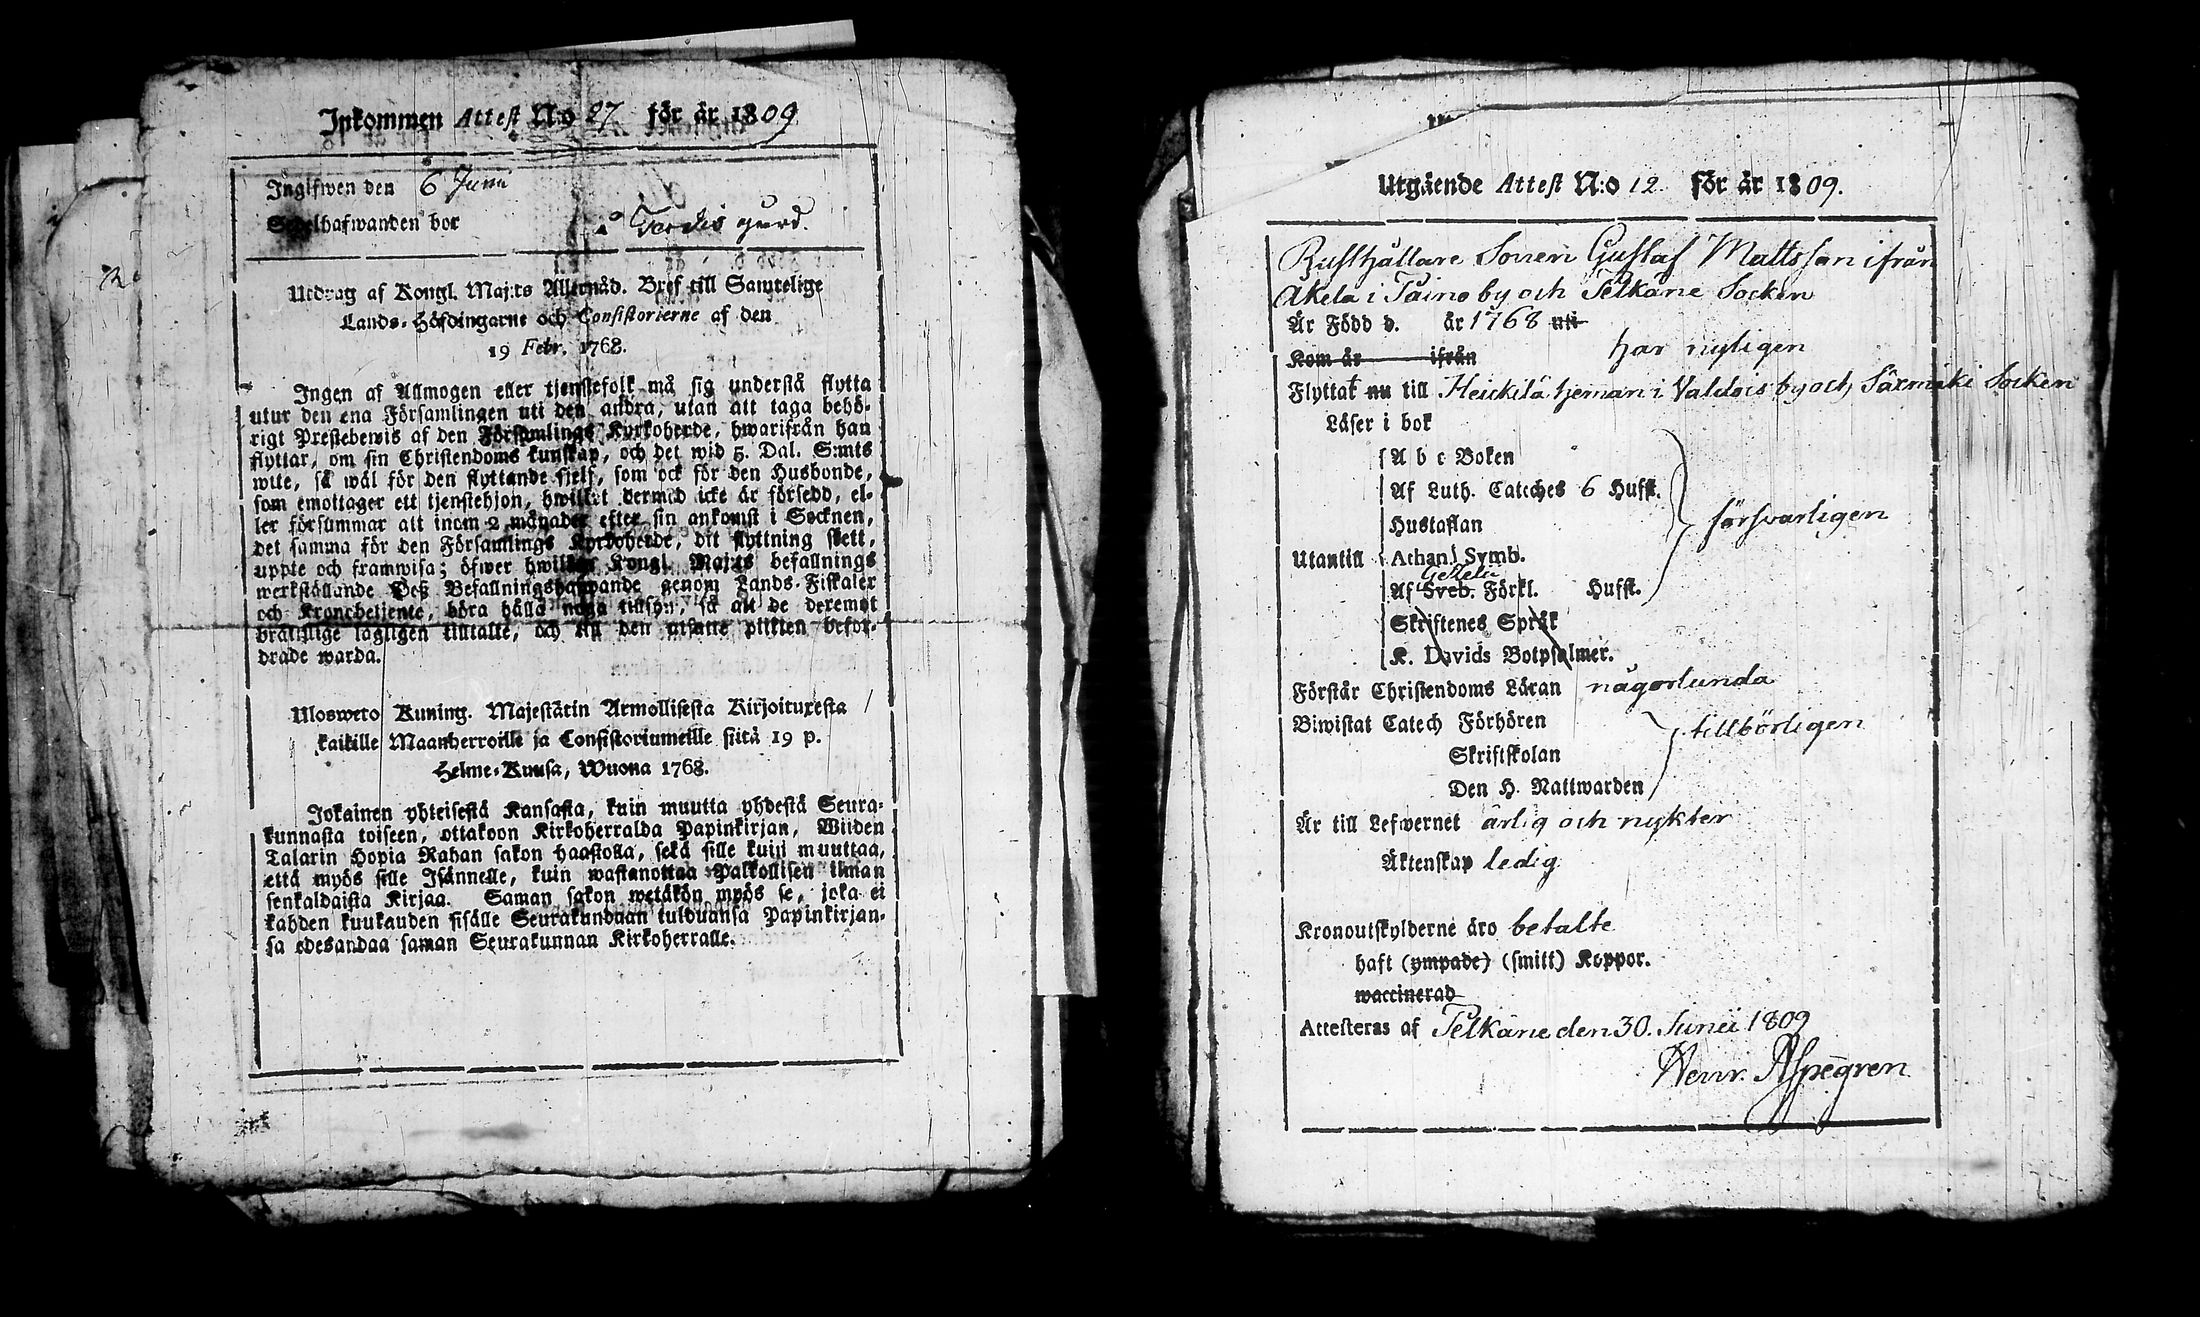 Inkommen Attest N:o 27 för år 1809
Ingifwen den 6 Junii
Sedelhafwanden bor å gård.
Utdrag af Kongl. Maj:ts Allernåd. Bref till Samtelige
Lands-Höfdingarne och Consistorierne af den
19 Febr. 1768.
Ingen af Allmogen eller tjenstefolk må sig understå flytta
utur den ena Församlingen uti den andra, utan att taga behö-
rigt Prestebewis af den Församlings Kyrkoherde, hwarifrån han
flyttar, om sin Christendoms kunskap, och det wid 5. Dal. S:mts
wite, så wäl för den flyttande sjelf, som ock för den Husbonde,
som emottager ett tjenstehjon, hwilket dermed icke är försedd, el-
ler försummar att inom 2 månader efter sin ankomst i Socknen,
det samma för den Församlings Kyrkoherde, dit flyttning skett,
uppte och framwisa; öfwer hwilket Kongl. Maj:ts befallnings
werkställande Deß Befallningshafwande genom Lands-Fiskaler
och Kronobetjente, böra hålla noga tillsyn, så att de deremot
bråttslige lagligen tilltalte, och till den utsatte plikten befor-
drade warda.
Ulosweto Kuning. Majestätin Armollisesta Kirjoituxesta
kaikille Maanherroille ja Consistoriumeille siitä 19 p.
Helme-Kuusa, Wuona 1768.
Jokainen yhteisestä Kansasta, kuin muutta yhdestä Seura-
kunnasta toiseen, ottakoon Kirkoherralda Papinkirjan, Wiiden
Talarin Hopia Rahan sakon haastolla, sekä sille kuin muuttaa,
että myös sille Isännelle, kuin wastanottaa Palkollisen ilman
senkaldaista Kirjaa. Saman sakon wetäkön myös se, joka ei
kahden kuukauden sisälle Seurakundaan tulduansa Papinkirjan-
sa edesandaa saman Seurakunnan Kirkoherralle.
Utgående Attest N:o 12 för år 1809.
Rusthållare Sonen Gustaf Mattsson ifrån
Äkelä i Taino by och Pelkäne Socken
Är Född d. år 1768 uti
Kom år ifrån har nyligen
Flyttat nu till Heickilä hemman i Valdois by och Säxmäki Socken
Läser i bok
A b c Boken
Af Luth. Cateches 6 Hufst.
Hustaflan försvarligen
Utantill Athan. Symb.
Gezelii
Af Sveb. Förkl. Hufst.
Skriftenes Språk
K. Davids Botpsalmer.
Förstår Christendoms Läran någorlunda
Biwistat Catech Förhören tillbörligen
Skriftskolan
Den H. Nattwarden
Är till Lefwernet ärlig och nykter
Äktenskap ledig
Kronoutskylderne äro betalte
haft (ympade) (smitt) Koppor.
waccinerad
Attesteras af Pelkäne den 30. Junii 1809
Henr. Aspegren